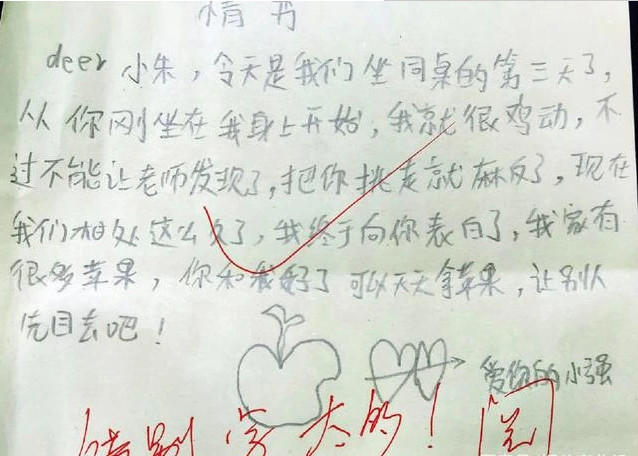 情书
deer 小朱，今天是我们坐同桌的第三天了，
从你刚坐在我身上开始，我就很鸡动，不
过不能让老师发现了，把你挑走就麻反了，现在
我们相处这么久了，我终于向你表白了，我家有
很多苹果，你和我好了可以天天拿苹果，让别人
先目去吧！
爱你的小强
大的！阅